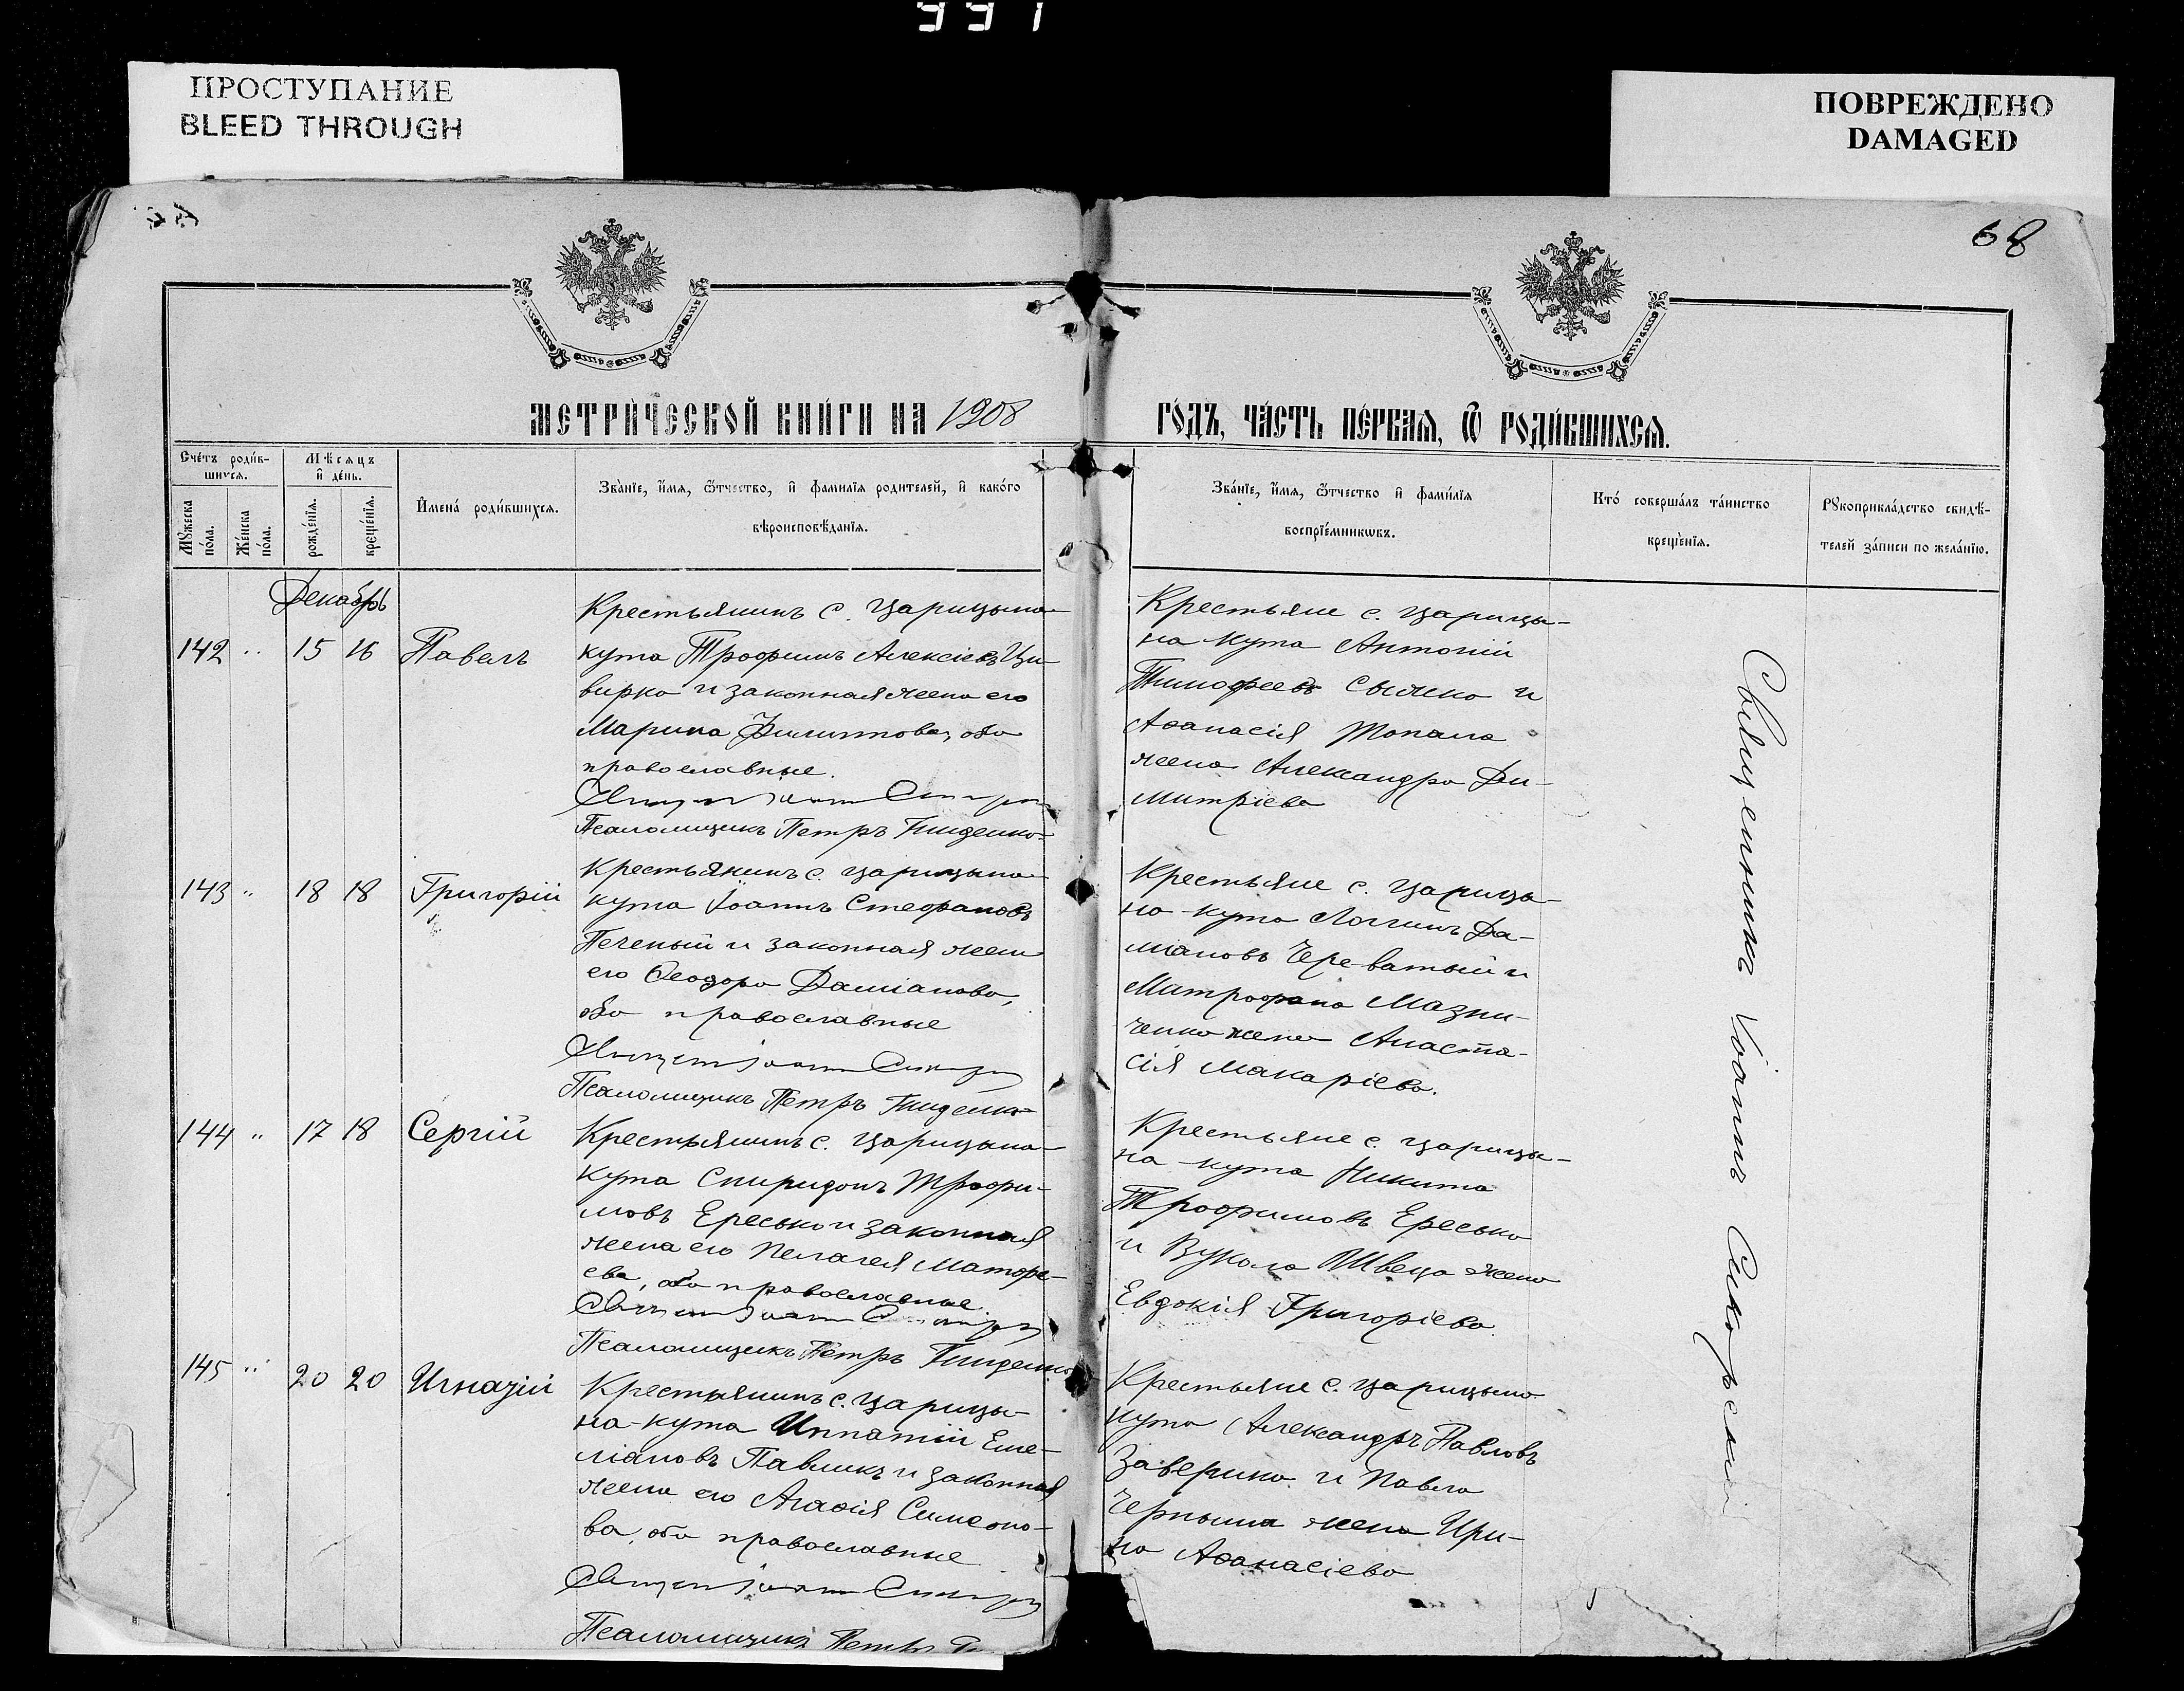 991
ПРОСТУПАНИЕ
BLEED THROUGH
ПОВРЕЖДЕНО
DAMAGED
68
МЕТРИ́ЧЕСКОЙ КНИ́ГИ НА 1908
ГО́ДЪ, ЧА́СТЬ ПЕ́РВАѦ, Ѿ РОДИ́ВШИХСѦ.
Сче́тъ роди́в-
шихся.
Мѣсяцъ
и҆ де́нь.
Мꙋжеска
по́ла.
Же́нска
по́ла.
рожде́нїя.
креще́нїя.
И҆мена́ роди́вшихся.
Зва́нїе, и҆́мя, ѻ҆́тчество, и҆ фами́лїя родителей, и҆ како́го
вѣроисповѣ́данїя.
Зва́нїе, и҆́мя, ѻ҆́тчество и҆ фами́лїя
воспрїе́мникѡвъ.
Кто́ соверша́лъ та́инство
креще́нїя.
Рꙋкоприкла́дство свидѣ́-
телей за́писи по жела́нїю.
Декабрь
142 " 15 16 Павелъ
Крестьянинъ с. Царицына
кута Трофимъ Алексіевъ Ци-
вирко и законная жена его
Марина Филиппова, оба
православные.
Псаломщикъ Петръ
Крестьяне с. Царицы-
на-кута Антоній
Тимофеевъ и
Аѳанасія Топала
жена Александра Ди-
митріева
143 " 18 18 Григорій
Крестьянинъ с. Царицына
кута Іоаннъ Стефановъ
Печеный и законная жена
его Ѳеодора Даміанова,
оба православные
Псаломщикъ Петръ
Крестьяне с. Царицы-
на-кута Логгинъ Да-
міановъ Череватый и
Митрофана Мазни-
ченко жена Анаста-
сія Макаріева.
144 " 17 18 Сергій
Крестьянинъ с. Царицына-
кута Спиридонъ Трофи-
мовъ Ересько и законная
жена его Пелагея Матфе-
ева, оба православные
Псаломщикъ Петръ
Крестьяне с. Царицы-
на-кута Никита
Трофимовъ Ересько
и Вукола Швеца жена
Евдокія Григоріева.
145 " 20 20 Игнатій
Крестьянинъ с. Царицы-
на-кута Ипатій Еме-
ліановъ Павликъ и законная
жена его Агаѳія Симеоно-
ва, оба православные
Псаломщикъ Петръ
Крестьяне с. Царицына
кута Александръ Павловъ
Заверико и Павла
жена Ири-
на Аѳанасіева
Священникъ Іоаннъ